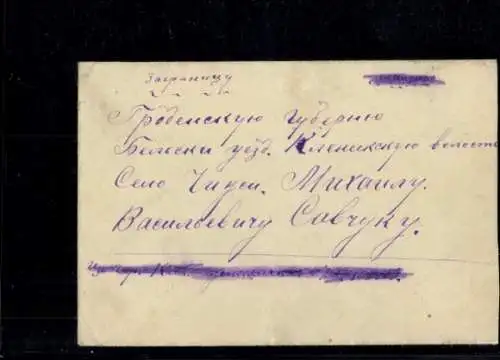 Заграницу
Гродненскую Губернию
Бельски уезд. Кленикскую волость
Село Чижи. Михаилу.
Васильевичу Савчуку.